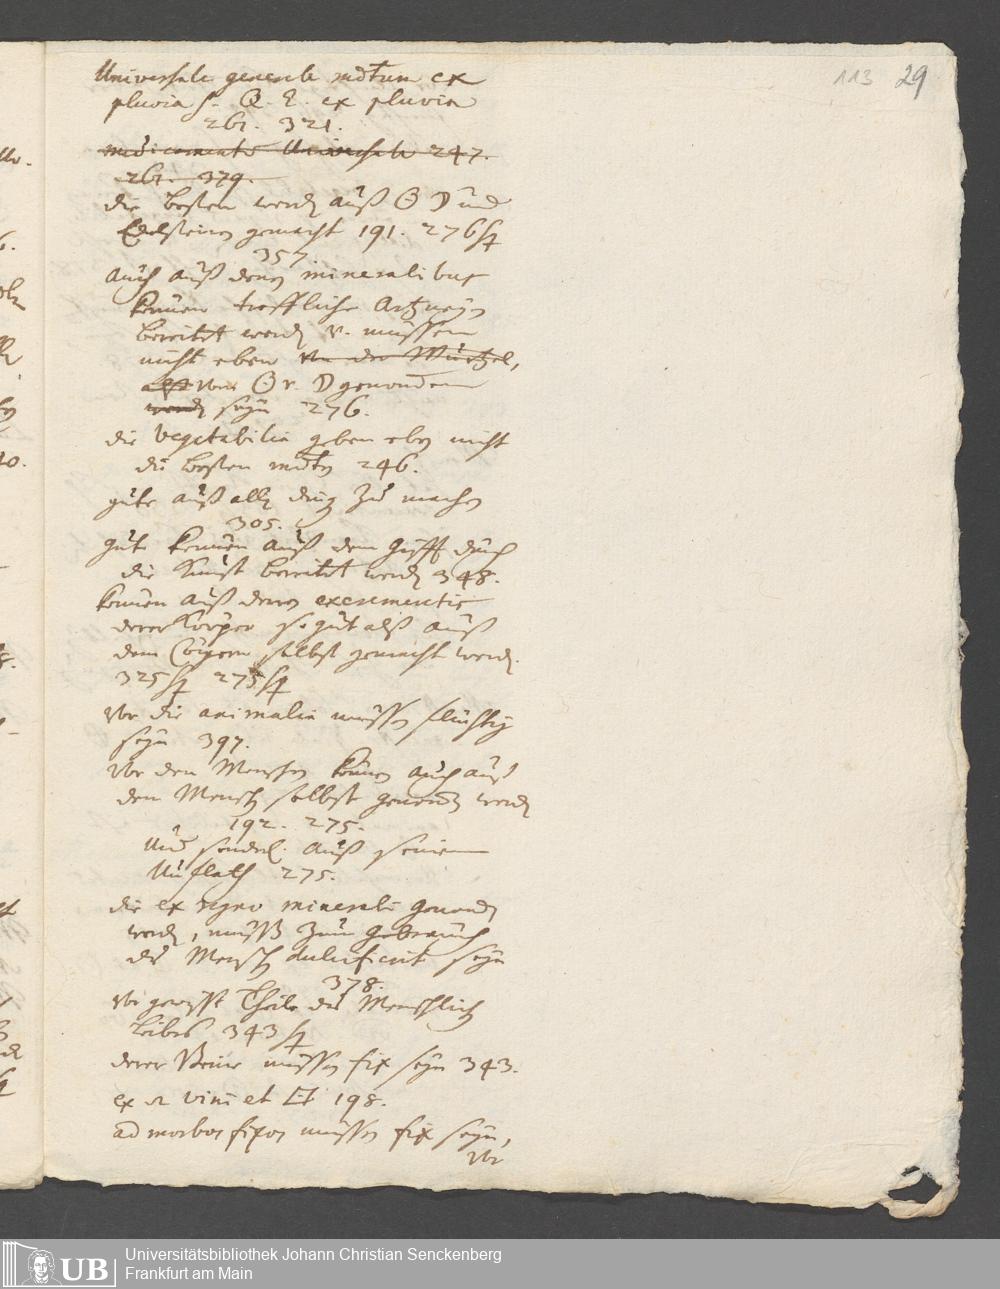 113 29
Universale generale mdtum ex
pluvia s. Q. E. ex pluvia
261. 321.
medicamente Universale 247.
261. 379.
die besten werdn auß ☉ ☽ und
Edelsteinen gemacht 191. 276
357.
auch auß denen mineralibus
können treffliche Artzneyn
bereitet werdn v. müssen
nicht eben von der Würtzel,
☉ v. ☽ genommen
werdn seyn 276.
die vegetabilia geben eben nicht
die besten mdta 246.
gute auß alln ding zu machen
305.
gute können auß dem Gifft durch
die Kunst bereitet werdn 348.
können auß denen excrementis
derer Körper so gut alß auß
dem Cörpern selbst gemacht werdn.
325 275
vor die animalia müssen flüchtig
seyn 397.
vor den Menschen können auch auß
dem Mensch selbst genommen werdn
192. 275.
Und sonderl. auß seinem
Unflath 275.
die ex regno minerali genommen
werdn, müssen zum gebrauch
des Mensch dulcificirt seyn
378.
vor gewisse Theile des Menschlich
Leibes 343
derer Steine müssen fix seyn 343.
vini et 198.
ad morbos fixos müssen fix seyn,
vor
UB
Universitätsbibliothek Johann Christian Senckenberg
Frankfurt am Main